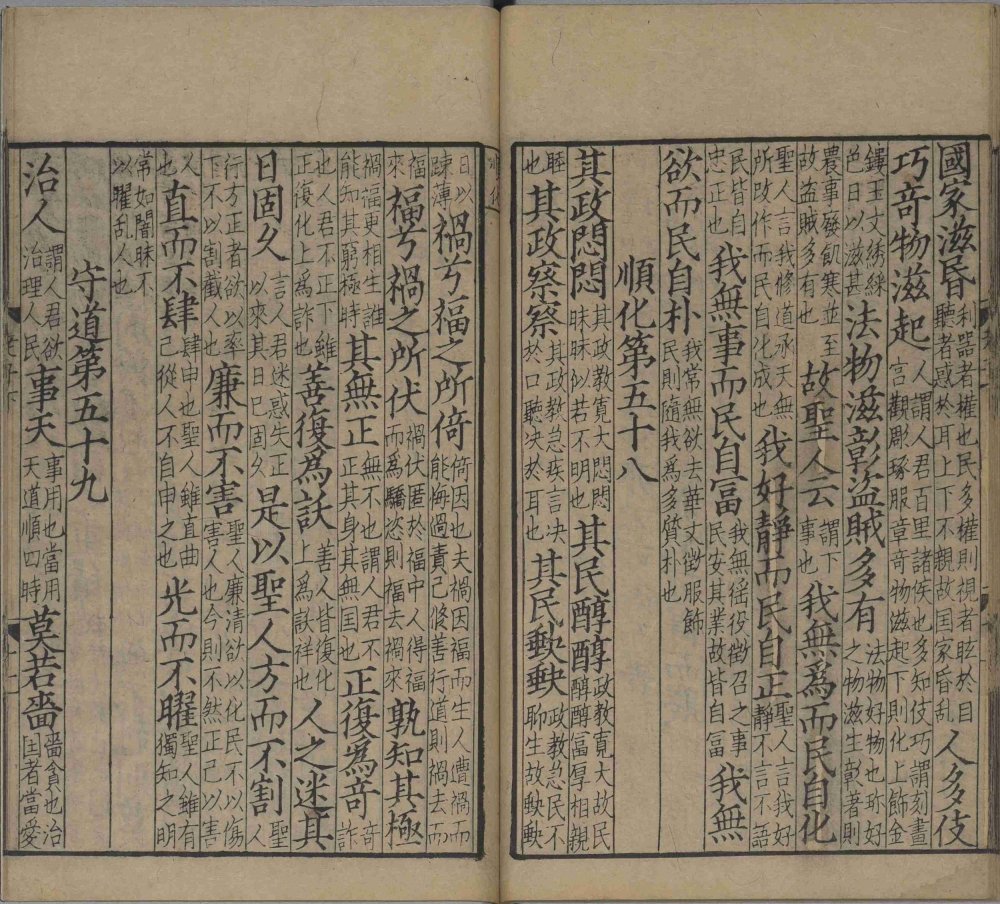 國家滋昏利器者權也民多權則視者眩於目聽者惑於耳上下不親故国家昏乱人多伎
巧竒物滋起人謂人君百里諸侯也多知伎巧謂刻畫宫觀彫琢服章竒物滋起下則化上飾金
鏤玉文綉綵色日以滋甚法物滋彰盜賊多有法物好物也珎好之物滋生彰著則
農事廢飢寒並至故盜賊多有也故聖人云謂下事也我無爲而民自化
聖人言我修道承天無所改作而民自化成也我好靜而民自正聖人言我好靜不言不語
民皆自忠正也我無事而民自冨我無徭役徵召之事民安其業故皆自冨我無
欲而民自朴我常無欲去華文徵服飾民則隨我爲多質朴也
順化第五十八
其政悶悶其政教寛大悶悶昧昧似若不明也其民醇醇政教寛大故民醇醇冨厚相親
睦也其政察察其政教急疾言决於口聽决於耳也其民缺缺政教急民不聊生故缺缺
日以踈薄禍兮福之所倚倚因也夫禍因福而生人遭禍而能悔過責己修善行道則禍去而
福來福兮禍之所伏禍伏匿於福中人得福而爲驕恣則福去禍來孰知其極
禍福更相生誰能知其窮極時其無正無不也謂人君不正其身其無国也正復爲竒竒詐
也人君不正下雖正復化上爲詐也善復爲訞善人皆復化上爲訞祥也人之迷其
日固久言人君迷惑失正以來其日已固久是以聖人方而不割聖人
行方正者欲以率下不以割截人也廉而不害聖人廉清欲以化民不以傷害人也今則不然正己以害
人也直而不肆肆申也聖人雖直曲己從人不自申之也光而不曜聖人雖有獨知之明
常如闇昧不以曜乱人也
守道第五十九
治人謂人君欲治理人民事天事用也當用天道順四時莫若嗇嗇貪也治国者當愛